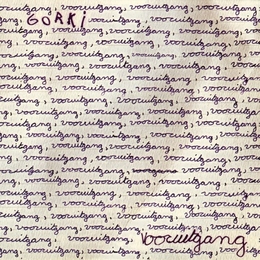 vooruitgang, vooruitgang, vooruitgang, vooruitgang,
GORKI vooruitgang, vooruitgang, vooruitgang,
vooruitgang, vooruitgang, vooruitgang, vooruitgang,
vooruitgang, vooruitgang, vooruitgang, vooruitgang,
vooruitgang, vooruitgang, vooruitgang, vooruitgang,
vooruitgang, vooruitgang, vooruitgang, vooruitgang,
vooruitgang, vooruitgang, vooruitgang, vooruitgang,
vooruitgang, vooruitgang, vooruitgang, vooruitgang,
vooruitgang, vooruitgang, vooruitgang, vooruitgang,
vooruitgang, vooruitgang, vooruitgang, vooruitgang,
vooruitgang, vooruitgang, vooruitgang, vooruitgang,
vooruitgang, vooruitgang, vooruitgang, vooruitgang,
vooruitgang, vooruitgang, vooruitgang,
vooruitgang, vooruitgang, vooruitgang, vooruitgang,
vooruitgang, vooruitgang, vooruitgang, vooruitgang,
vooruitgang, vooruitgang, vooruitgang, vooruitgang,
vooruitgang, vooruitgang, vooruitgang, vooruitgang,
vooruitgang, vooruitgang, vooruitgang